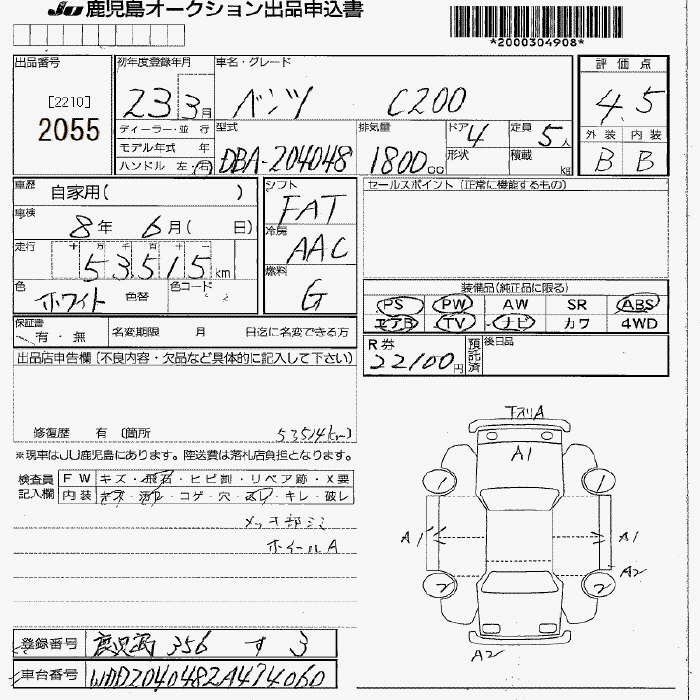 JU 鹿児島オークション出品申込書
*2000304908*
出品番号
[2210]
2055
初年度登録年月
23 3月
ディーラー・並行
モデル年式 年
ハンドル 左・右
車名・グレード
ベンツ C200
型式
DBA-204048
排気量
1800cc
ドア 4
形状
定員 5人
積載 kg
評価点
4.5
外装 内装
B B
車歴
自家用( )
車検
8年 6月( 日)
走行
十 万 千 百 十 一
53515km
色
ホワイト 色替
色コード
シフト
FAT
冷房
AAC
燃料
G
セールスポイント(正常に機能するもの)
装備品(純正品に限る)
PS PW AW SR ABS
エアB TV ナビ カワ 4WD
保証書
有・無
名変期限 月 日迄に名変できる方
R券
22100円
預託済
後日品
出品店申告欄(不良内容・欠品など具体的に記入して下さい)
修復歴 有 〔箇所
53514km〕
※現車はJU鹿児島にあります。陸送費は落札店負担となります。
検査員記入欄
FW キズ・飛石・ヒビ割・リペア跡・X要
内装 キズ・汚れ・コゲ・穴・スレ・キレ・破レ
ホイールA
下スリA
A1
1 1
A1 A1
A2
2 2
A2
登録番号 鹿児島 356 す 3
車台番号 WDD2040482A474060